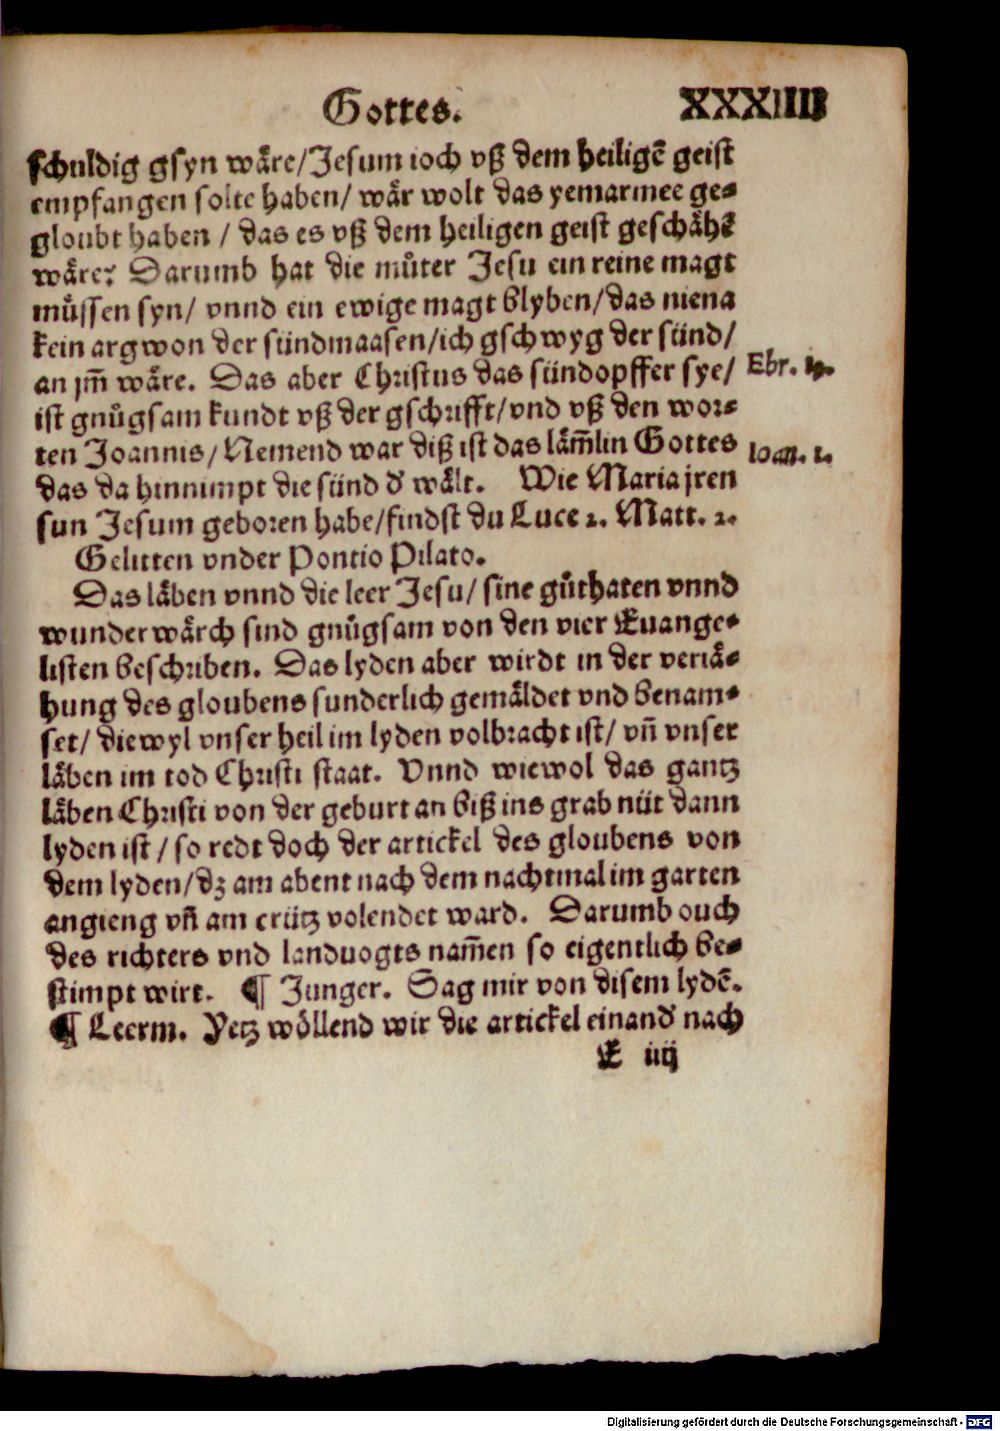 Gottes. XXXIIII
schuldig gsyn wåre/Jesum ioch vß dem heiligē geist
empfangen solte haben/ wår wolt das yemarmee ge⸗
gloubt haben / das es vß dem heiligen geist geschåhē
wåre? Darumb hat die můter Jesu ein reine magt
můssen syn/ vnnd ein ewige magt blyben/das niena
kein argwon der sündmaasen/ich gschwyg der sünd/
an jm̄ wåre. Das aber Christus das sündopffer sye/ Ebr. 9.
ist gnůgsam kundt vß der gschrifft/vnd vß den wor⸗
ten Joannis/ Nemend war diß ist das låm̄lin Gottes Ioan. 1.
das da hinnimpt die sünd d' wålt. Wie Maria jren
sun Jesum geboren habe/findst du Luce 2. Matt. 2.
Gelitten vnder Pontio Pilato.
Das låben vnnd die leer Jesu/ sine gůthaten vnnd
wunderwårch sind gnůgsam von den vier Euange⸗
listen beschriben. Das lyden aber wirdt in der veriå⸗
hung des gloubens sunderlich gemåldet vnd benam⸗
set/ diewyl vnser heil im lyden volbracht ist/ vn̄ vnser
låben im tod Christi staat. Vnnd wiewol das gantz
låben Christi von der geburt an biß ins grab nüt dann
lyden ist / so redt doch der artickel des gloubens von
dem lyden/dz am abent nach dem nachtmal im garten
angieng vn̄ am crütz volendet ward. Darumb ouch
des richters vnd landuogts nam̄en so eigentlich be⸗
stimpt wirt. ¶ Junger. Sag mir von disem lydē.
¶ Leerm. Yetz wöllend wir die artickel einand' nach
E iiij
Digitalisierung gefördert durch die Deutsche Forschungsgemeinschaft - DFG